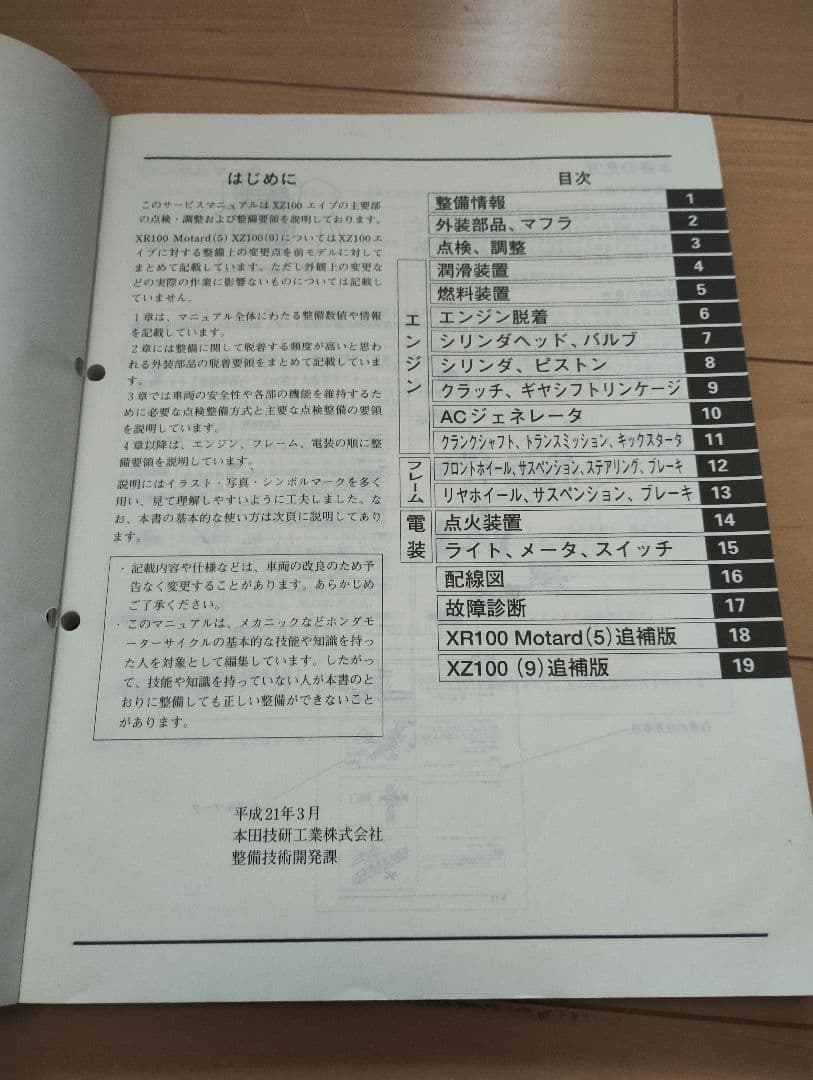 はじめに
このサービスマニュアルは XZ100 エイプの主要部
の点検・調整および整備要領を説明しております。
XR100 Motard(5) XZ100(9)についてはXZ100エ
イプに対する整備上の変更点を前モデルに対して
まとめて記載しています。ただし外観上の変更な
どの実際の作業に影響ないものについては記載し
ていません。
1章は、マニュアル全体にわたる整備数値や情報
を記載しています。
2章には整備に関して脱着する頻度が高いと思わ
れる外装部品の脱着要領をまとめて記載していま
す。
3章では車両の安全性や各部の機能を維持するた
めに必要な点検整備方式と主要な点検整備の要領
を説明しています。
4章以降は、エンジン、フレーム、電装の順に整
備要領を説明しています。
説明にはイラスト・写真・シンボルマークを多く
用い、見て理解しやすいように工夫しました。な
お、本書の基本的な使い方は次頁に説明してあり
ます。
・記載内容や仕様などは、車両の改良のため予
告なく変更することがあります。あらかじめ
ご了承ください。
・このマニュアルは、メカニックなどホンダモ
ーターサイクルの基本的な技能や知識を持っ
た人を対象として編集しています。したがっ
て、技能や知識を持っていない人が本書のと
おりに整備しても正しい整備ができないこと
があります。
平成21年3月
本田技研工業株式会社
整備技術開発課
目次
整備情報 1
外装部品、マフラ 2
点検、調整 3
エンジン
潤滑装置 4
燃料装置 5
エンジン脱着 6
シリンダヘッド、バルブ 7
シリンダ、ピストン 8
クラッチ、ギヤシフトリンケージ 9
ACジェネレータ 10
クランクシャフト、トランスミッション、キックスタータ 11
フレーム
フロントホイール、サスペンション、ステアリング、ブレーキ 12
リヤホイール、サスペンション、ブレーキ 13
電装
点火装置 14
ライト、メータ、スイッチ 15
配線図 16
故障診断 17
XR100 Motard(5)追補版 18
XZ100 (9)追補版 19